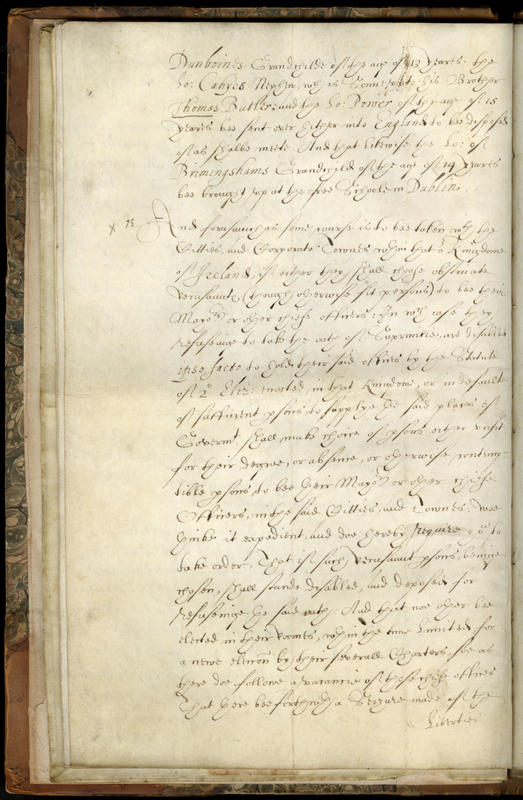 Dunboines Grandchilde of the age of 13 yeares: the
Lo: Cahyrs Nephew, wch is Sonne to his Brother
Thomas Butler: and the Lo: Power of the age of 15
yeares bee sent over hither into England to bee disposed
of as shalbe meete And that likewise the Lo: of
Birminghams Grandchild of the age of 14 yeares
bee brought up at the free Schoole in Dublin.
x 75 And forasmuch as some course is to bee taken wth the
Citties, and Corporate Townes within that or Kingdome
of Ireland, if either they shall choose obstinate
recusants (though otherwise fit persons) to bee their
Mayors or other chiefe officers: In wch case they
refuseinge to take the oath of Supremacie, are disabled
ipso facto to hold their said offices by the Statute
of 2o Eliz: enacted in that Kingdome, or in default
of sufficient psons to supplye the said places of
Governmt shall make choice of psons either unfit
for their degree, or absence, or otherwise contemp-
tible psons, to bee their Mayors or other chiefe
Officers, in the said Citties, and Townes: Wee
thinke it expedient, and doe hereby require you to
take order, That if such recusant psons, beinge
chosen, shall stande disabled, and deposed for
refuseinge the said oath: And that noe other bee
elected in their roomes, within the time Limited, for
a newe election by their severall Charters, soe as
there doe followe a vacancie of those chiefe offices
That there bee forthwith a Seizure made of the
Liberties